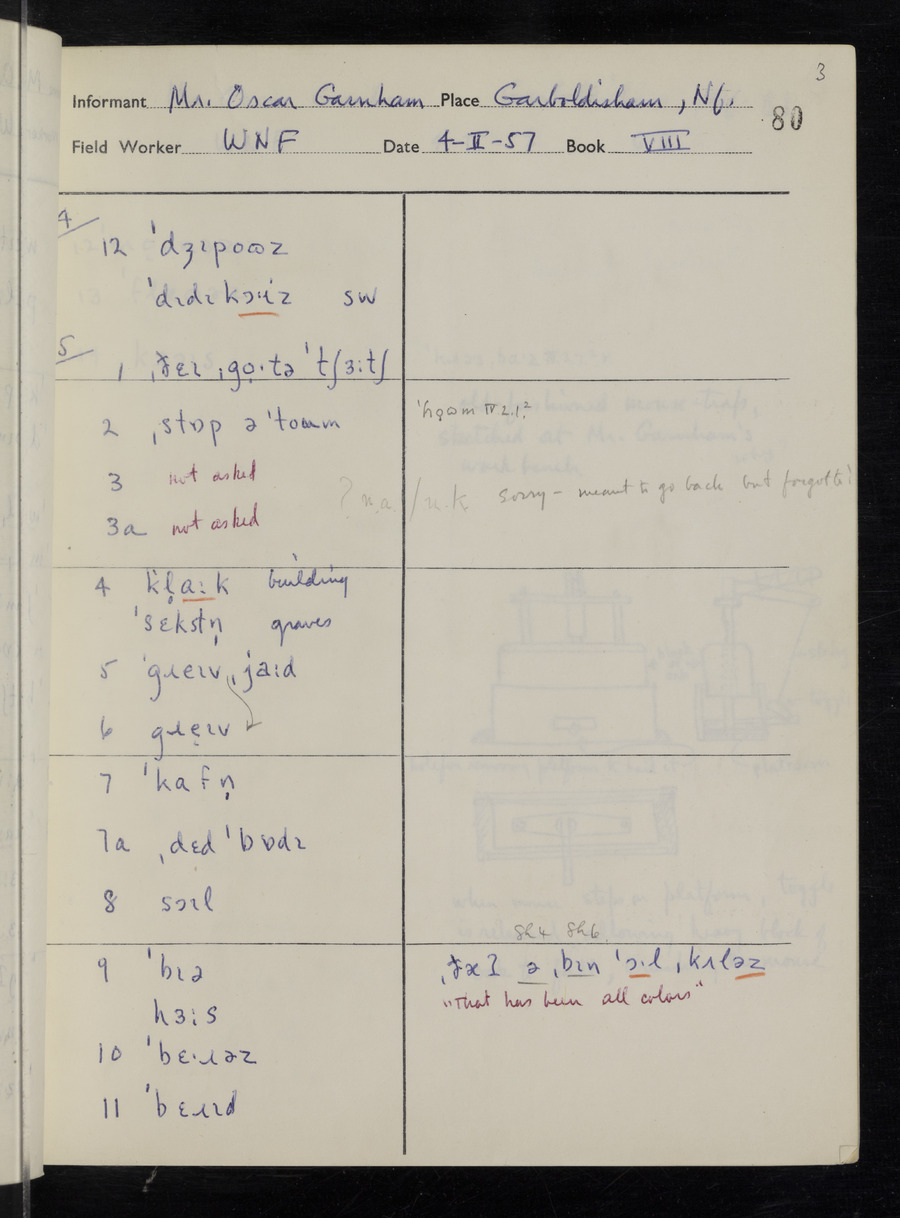 3
Informant Mr. Oscar Garnham Place Garboldisham, Nf.
80
Field Worker WNF Date 4-II-57 Book VIII
4/
12 ˈdʒɪpoʊz
ˈdɪdɪ sw
5/
1 ˈtʃɜːtʃ
2 ˌstɒp ə
IV 2.1?
3 not asked
? n.a. / n.k. Sorry - meant to go back but forgot to!
3a not asked
4 building
ˈsɛkstn̩ graves
5 ˈgɹeɪv ˌjaːd
6 gɹe̞ɪv
7 ˈkafn̩
7a ˌdɛd ˈbɒdɪ
8 sɔɪl
Sh4 Sh6
9 ˈbɪə
ˌbɪn ˈɔ·l ˌkʌləz
hɜːs
"That has been all colors"
10 ˈbɛ·ɹəz
11 ˈbɛɹɪd